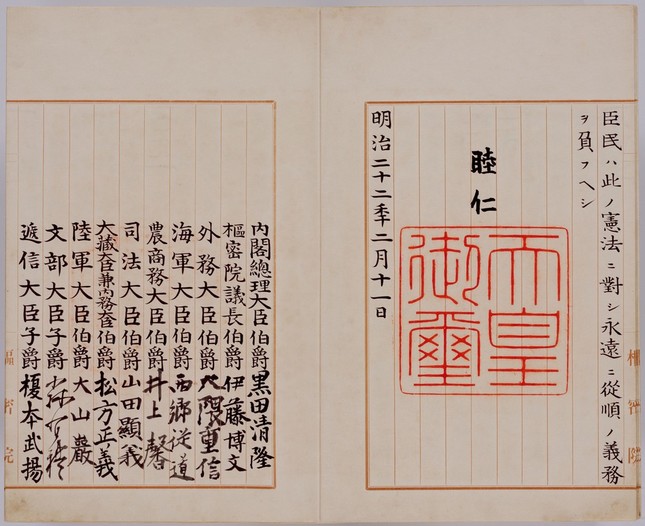 臣民ハ此ノ憲法ニ對シ永遠ニ從順ノ義務
ヲ負フヘシ
睦仁
天皇
御璽
明治二十二年二月十一日
內閣總理大臣伯爵黑田清隆
樞密院議長伯爵伊藤博文
外務大臣伯爵大隈重信
海軍大臣伯爵西鄉從道
農商務大臣伯爵井上馨
司法大臣伯爵山田顯義
大藏大臣兼內務大臣伯爵松方正義
陸軍大臣伯爵大山巖
文部大臣子爵森有禮
遞信大臣子爵榎本武揚
樞密院
樞密院